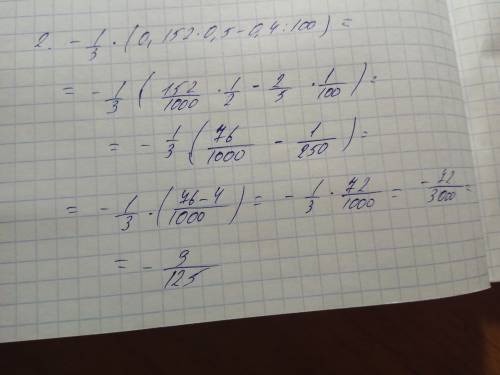 2. - 1/3 · (0,152·0,5 - 0,4:100) =
= - 1/3 (152/1000 · 1/2 - 2/5 · 1/100) =
= - 1/3 (76/1000 - 1/250) =
= - 1/3 · (76-4/1000) = - 1/3 · 72/1000 = -72/3000 =
= - 9/125